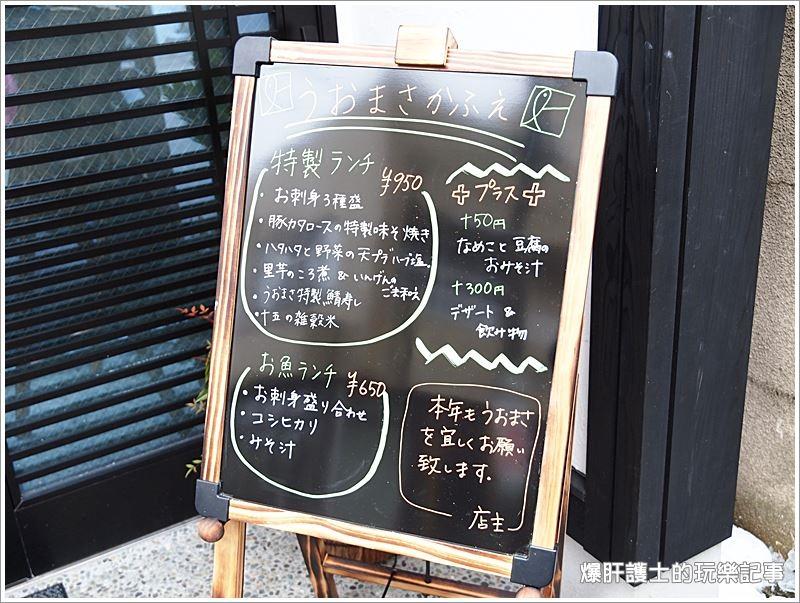 うおまさかふぇ
特製ランチ ¥950
・お刺身3種盛
・豚カタロースの特製味そ焼き
・ハタハタと野菜の天プラハーブ塩。
・里芋のころ煮 & いんげんのごま和え
・うおまさ特製鯖寿し
・十五の雑穀米
お魚ランチ ¥650
・お刺身盛り合わせ
・コシヒカリ
・みそ汁
プラス
+50円
なめこと豆腐の
おみそ汁
+300円
デザート &
飲み物
本年もうおまさ
を宜しくお願い
致します。
店主
爆肝護士的玩樂記事